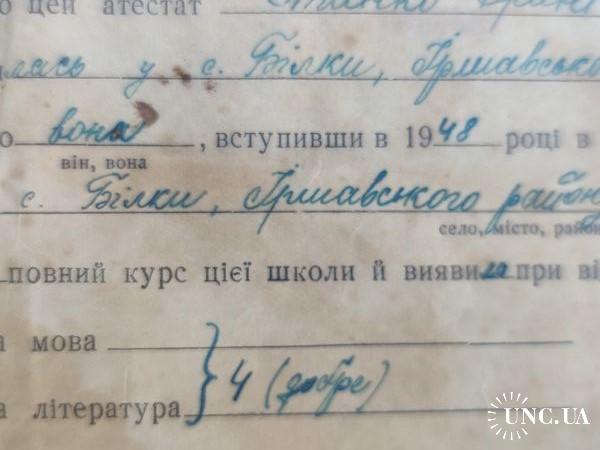 о цей атестат
лась у с. Білки, Іршавсько
о вона, вступивши в 1948 році в
він, вона
с. Білки, Іршавського району
село, місто, район
повний курс цієї школи й виявила при ві
а мова
а література } 4 (добре)
UNC.UA